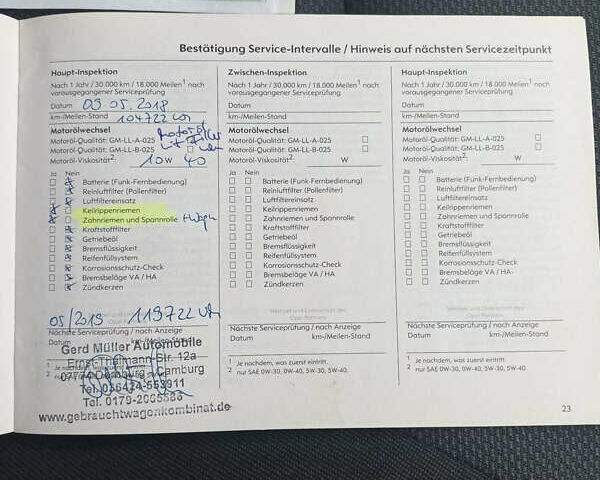 Bestätigung Service-Intervalle / Hinweis auf nächsten Servicezeitpunkt
Haupt-Inspektion
Nach 1 Jahr / 30.000 km / 18.000 Meilen¹ nach
vorausgegangener Serviceprüfung
Datum 09 05. 2018
km-/Meilen-Stand 104722 km
Motorölwechsel
Motoröl-Qualität: GM-LL-A-025
Motoröl-Qualität: GM-LL-B-025
Motoröl-Viskosität² 10W 40
Ja Nein
Batterie (Funk-Fernbedienung)
Reinluftfilter (Pollenfilter)
Luftfiltereinsatz
Keilrippenriemen
Zahnriemen und Spannrolle
Kraftstofffilter
Getriebeöl
Bremsflüssigkeit
Reifenfüllsystem
Korrosionsschutz-Check
Bremsbeläge VA / HA
Zündkerzen
05/2019 119722 km
Nächste Serviceprüfung / nach Anzeige
Datum km-/Meilen-Stand
Gerd Müller Automobile
Ernst-Thälmann-Str. 12a
07774 Dornburg - Camburg
Tel. 036421-
Tel. 0179-
www.gebrauchtwagenkombinat.de
Zwischen-Inspektion
Nach 1 Jahr / 30.000 km / 18.000 Meilen¹ nach
vorausgegangener Serviceprüfung
Datum
km-/Meilen-Stand
Motorölwechsel
Motoröl-Qualität: GM-LL-A-025
Motoröl-Qualität: GM-LL-B-025
Motoröl-Viskosität² W
Ja Nein
Batterie (Funk-Fernbedienung)
Reinluftfilter (Pollenfilter)
Luftfiltereinsatz
Keilrippenriemen
Zahnriemen und Spannrolle
Kraftstofffilter
Getriebeöl
Bremsflüssigkeit
Reifenfüllsystem
Korrosionsschutz-Check
Bremsbeläge VA / HA
Zündkerzen
Nächste Serviceprüfung / nach Anzeige
Datum km-/Meilen-Stand
¹ Je nachdem, was zuerst eintritt.
² nur SAE 0W-30, 0W-40, 5W-30, 5W-40.
Haupt-Inspektion
Nach 1 Jahr / 30.000 km / 18.000 Meilen¹ nach
vorausgegangener Serviceprüfung
Datum
km-/Meilen-Stand
Motorölwechsel
Motoröl-Qualität: GM-LL-A-025
Motoröl-Qualität: GM-LL-B-025
Motoröl-Viskosität² W
Ja Nein
Batterie (Funk-Fernbedienung)
Reinluftfilter (Pollenfilter)
Luftfiltereinsatz
Keilrippenriemen
Zahnriemen und Spannrolle
Kraftstofffilter
Getriebeöl
Bremsflüssigkeit
Reifenfüllsystem
Korrosionsschutz-Check
Bremsbeläge VA / HA
Zündkerzen
Nächste Serviceprüfung / nach Anzeige
Datum km-/Meilen-Stand
¹ Je nachdem, was zuerst eintritt.
² nur SAE 0W-30, 0W-40, 5W-30, 5W-40.
23